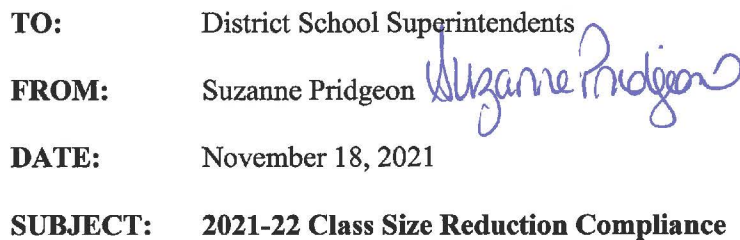 TO: District School Superintendents
FROM: Suzanne Pridgeon Suzanne Pridgeon
DATE: November 18, 2021
SUBJECT: 2021-22 Class Size Reduction Compliance